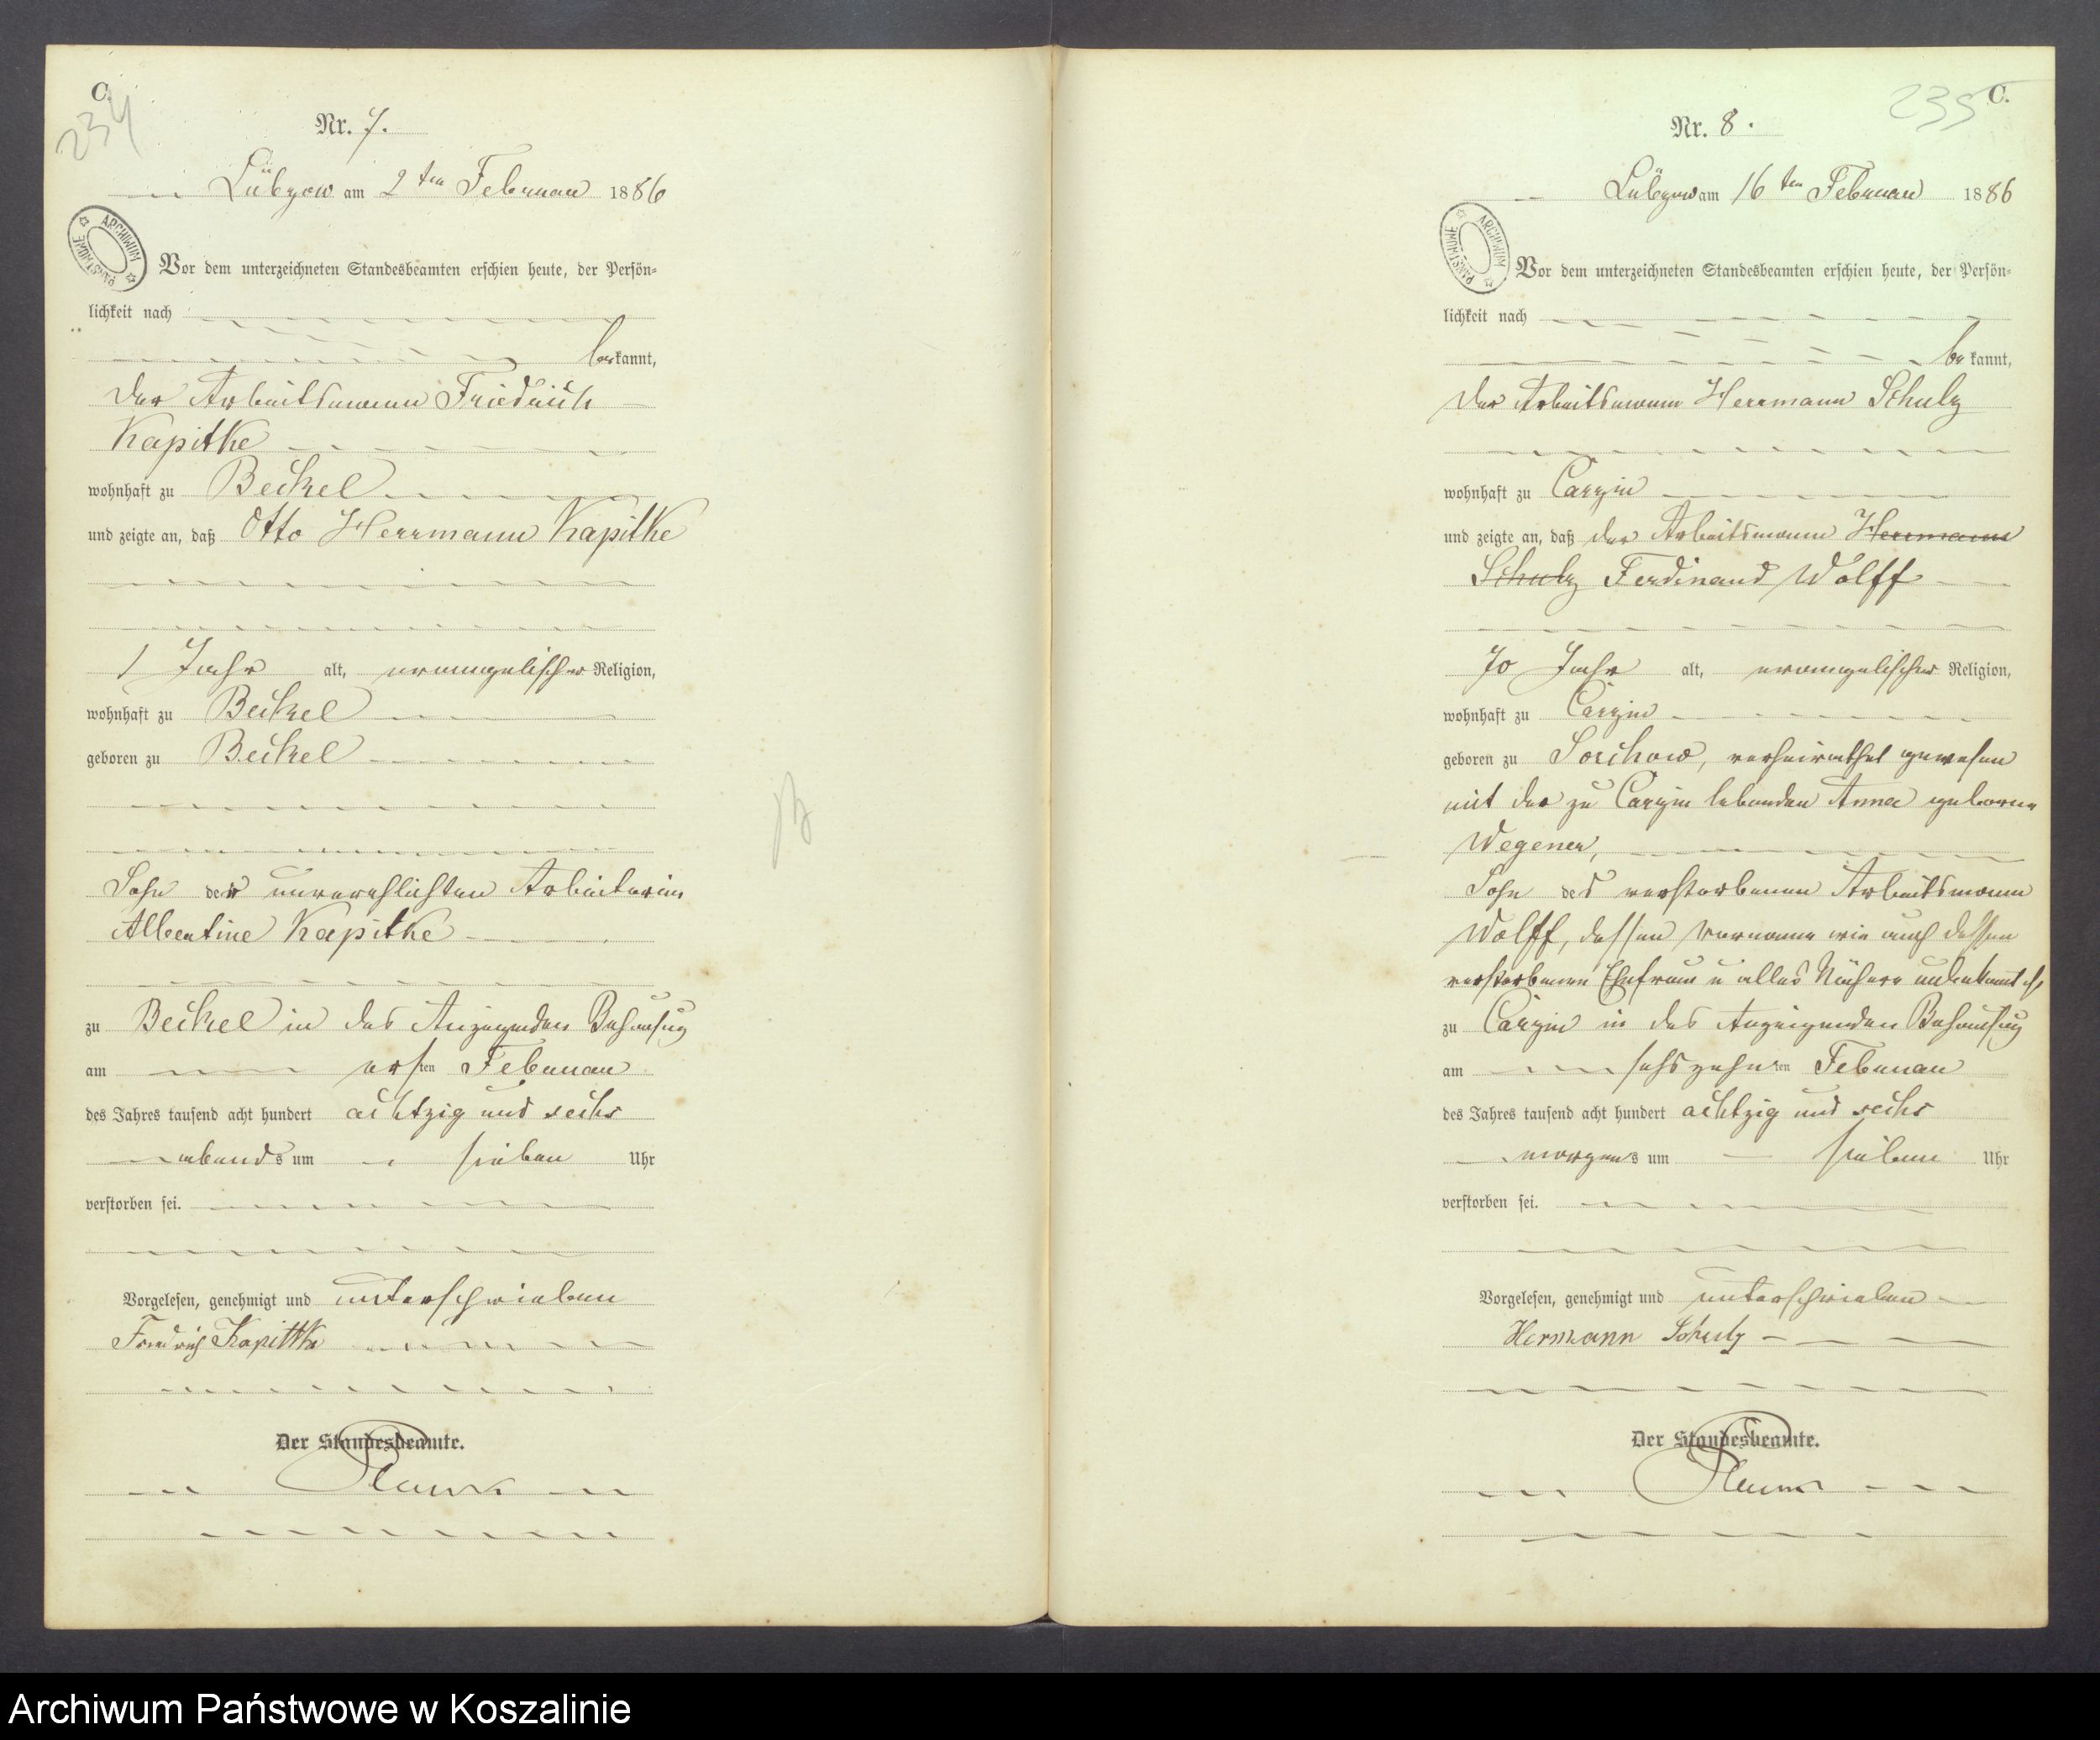 C.
234
Nr. 7.
Lübzow am 2ten Februar 1886
ARCHIWUM PAŃSTWOWE
Vor dem unterzeichneten Standesbeamten erschien heute, der Persön-
lichkeit nach
bekannt,
der Arbeitsmann Friedrich
Kapitke
wohnhaft zu Beckel
und zeigte an, daß Otto Herrmann Kapitke
1 Jahr alt, evangelischer Religion,
wohnhaft zu Beckel
geboren zu Beckel
Sohn der unverehlichten Arbeiterin
Albertine Kapitke
zu Beckel in des Anzeigenden Behausung
am ersten Februar
des Jahres tausend acht hundert achtzig und sechs
abends um sieben Uhr
verstorben sei.
Vorgelesen, genehmigt und unterschrieben
Friedrich Kapittke
Der Standesbeamte.
C.
235
Nr. 8.
Lübzow am 16ten Februar 1886
ARCHIWUM PAŃSTWOWE
Vor dem unterzeichneten Standesbeamten erschien heute, der Persön-
lichkeit nach
bekannt,
der Arbeitsmann Herrmann Schulz
wohnhaft zu Carzin
und zeigte an, daß der Arbeitsmann Herrmann
Schulz Ferdinand Wolff
70 Jahr alt, evangelischer Religion,
wohnhaft zu Carzin
geboren zu Sorchow, verheirathet gewesen
mit der zu Carzin lebenden Anna geborne
Wegener,
Sohn des verstorbenen Arbeitsmann
Wolff, dessen Vorname wie auch dessen
verstorbenen Ehefrau u alles Nähere unbekannt ist
zu Carzin in des Anzeigenden Behausung
am sechszehnten Februar
des Jahres tausend acht hundert achtzig und sechs
morgens um sieben Uhr
verstorben sei.
Vorgelesen, genehmigt und unterschrieben
Hermann Schulz
Der Standesbeamte.
Archiwum Państwowe w Koszalinie